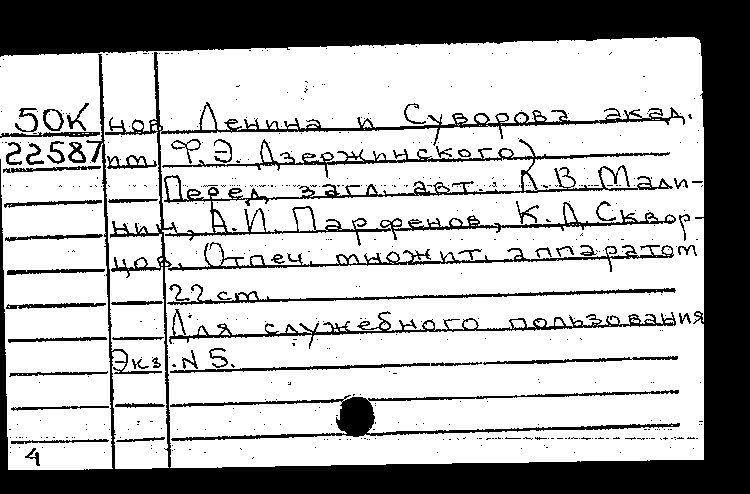 50К нов Ленина и Суворова акад.
22587 им. Ф.Э. Дзержинского)
Перед загл. авт.: А.В. Мали-
нин, А.И. Парфенов, К.Д. Сквор-
цов. Отпеч. множит. аппаратом
22 cm.
Для служебного пользования
Экз. N 5.
4